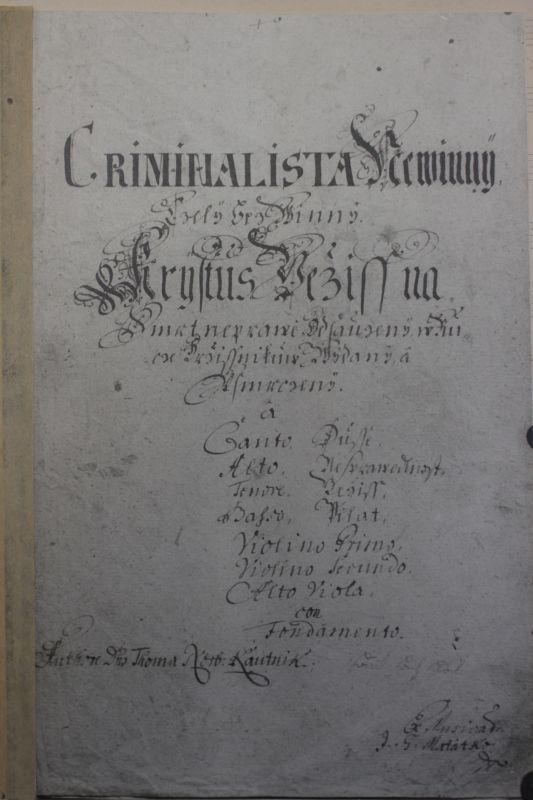 CRIMINALISTA Newinnÿ,
Celÿ bez Winnÿ.
Krystus Gežiss na
Smrt neprawě Odsauzenÿ, w Ru
ce Hržissnikuw Wÿdanÿ, á
Usmrczenÿ.
á
Canto. Dusse.
Alto. Nesprawedlnost.
Tenore. Gežiss.
Basso. Pilat.
Violino Primo.
Violino Secundo.
Alto Viola.
con
Fondamento.
Authore Dno Thoma Kautnik.
Ex Musical:
J. G. Matatko